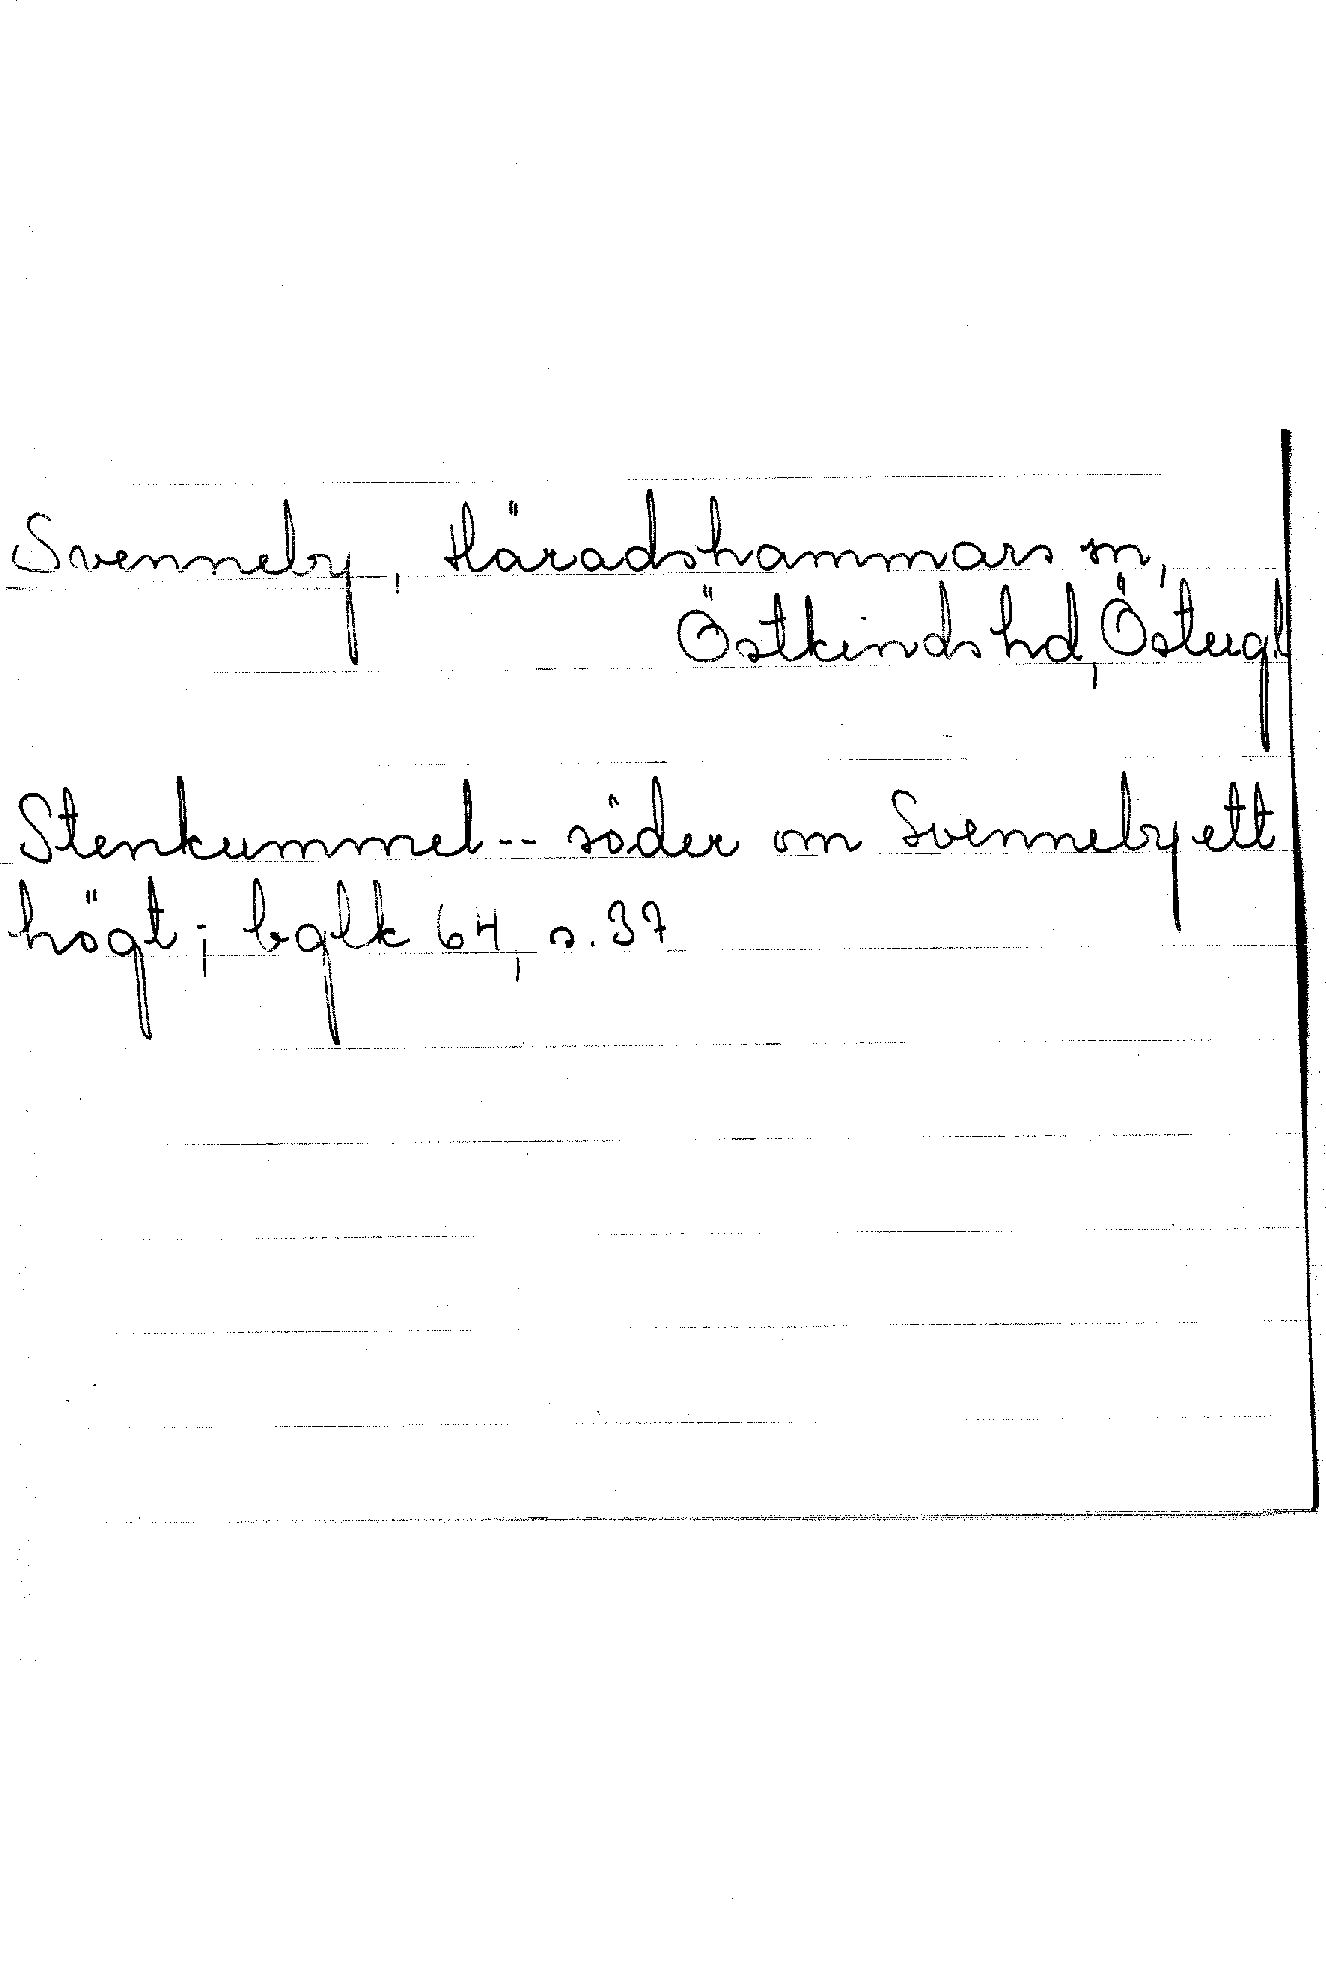 Svenneby, Häradshammars sn,
Östkinds hd, Östergl
Stenkummel -- söder om Svenneby ett
högt; bglk 64, s. 37